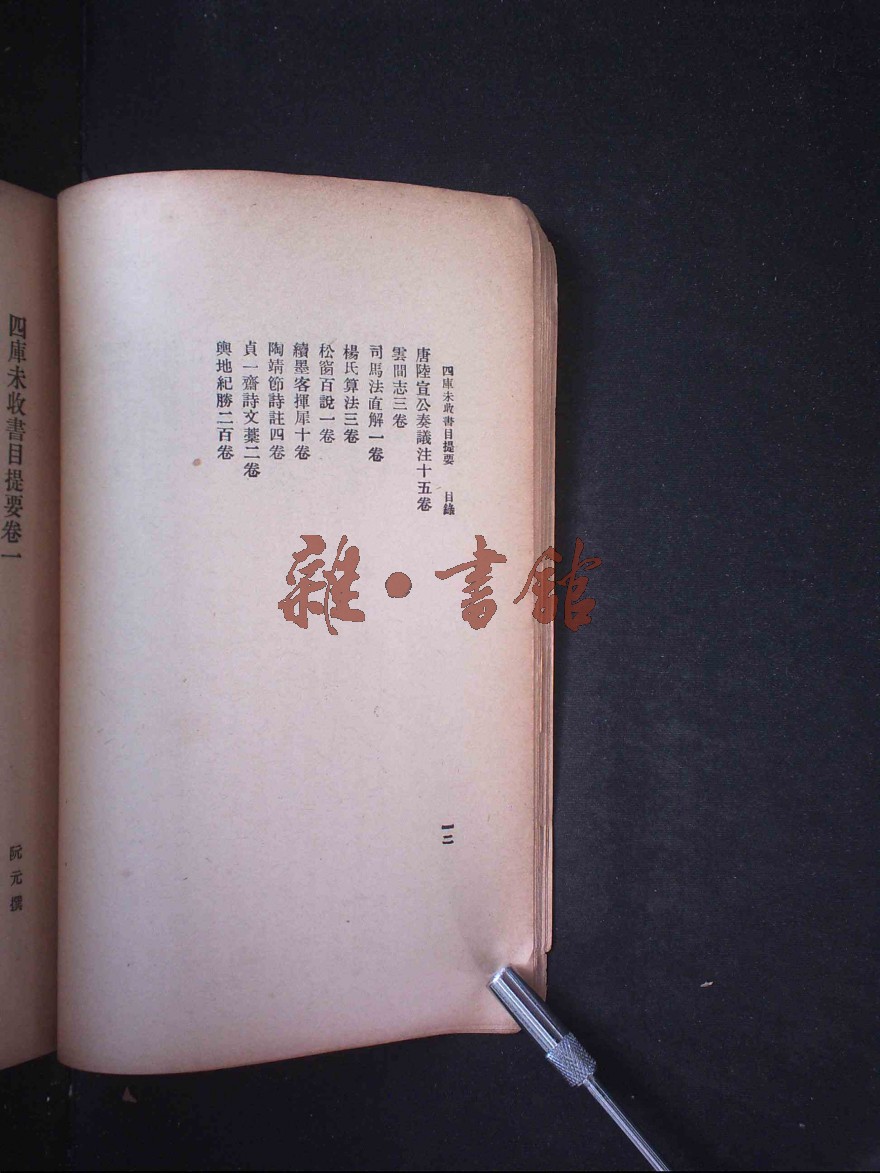 四庫未收書目提要　目錄
唐陸宣公奏議注十五卷
雲間志三卷
司馬法直解一卷
楊氏算法三卷
松窗百說一卷
續墨客揮犀十卷
陶靖節詩註四卷
貞一齋詩文藁二卷
輿地紀勝二百卷
一二
四庫未收書目提要卷一
阮元撰
雜·書館